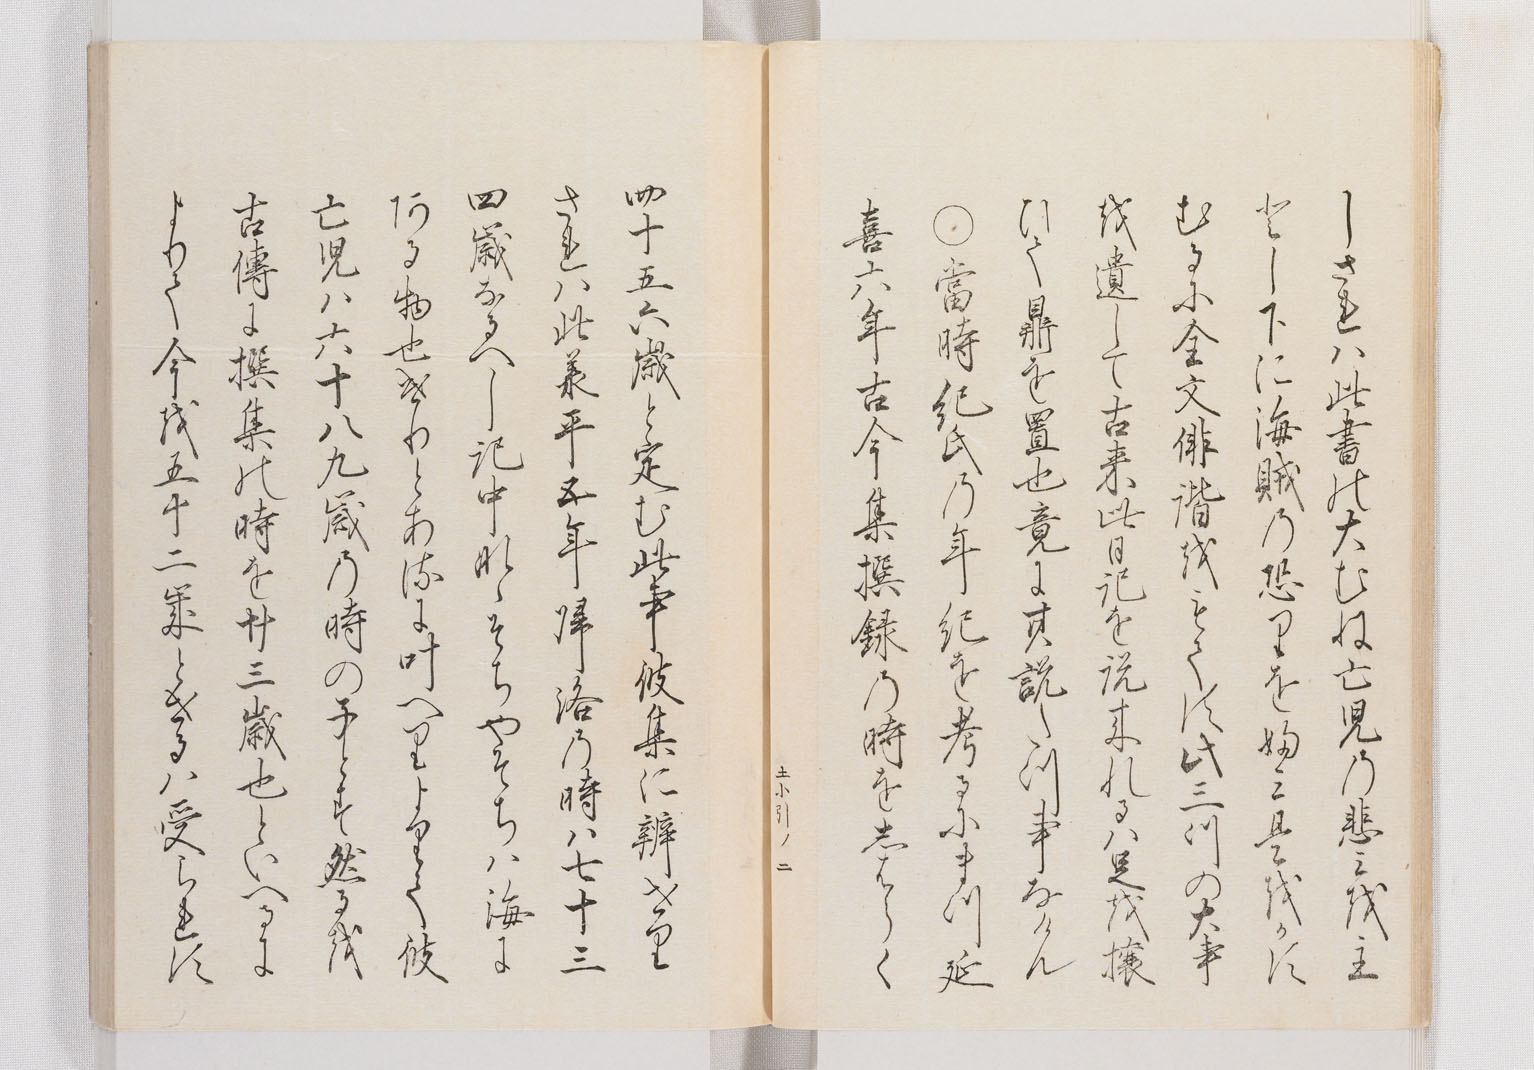 しされハ此書の大むね亡児の悲ミを主
とし下に海賊の恐りを婦ミ是をかす
むるに全文俳諧をもてす此三つの大事
を遺して古来此日記を説来れるハ足を攘
ひて鼎を置也竟に其説く事なけん
○當時紀氏の年紀を考るにまつ延
喜六年古今集撰録の時をしはらく
四十五六歳と定む此事彼集に辨せり
されハ此承平五年帰洛の時ハ七十三
四歳なるへし記中に、そちやそちハ海に
ある物也けりとあるに叶へりよりて彼
亡児ハ六十八九歳の時の子とす然るを
古傳に撰集の時を廿三歳也といへるに
よりて今を五十二歳とせるハ受られす
土小引ノ二